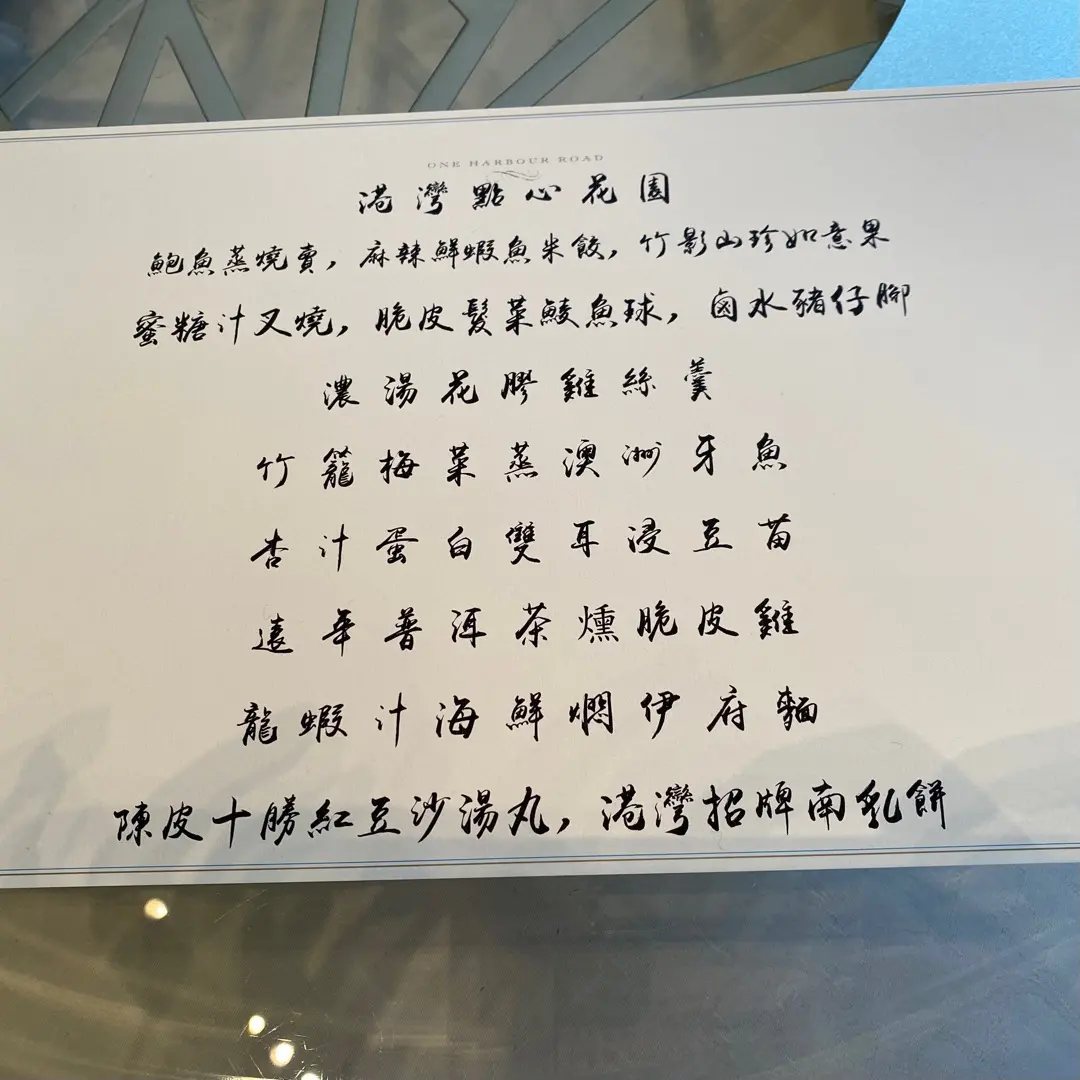 ONE HARBOUR ROAD
港灣點心花園
鮑魚蒸燒賣，麻辣鮮蝦魚米餃，竹影山珍如意果
蜜糖汁叉燒，脆皮髮菜鯪魚球，鹵水豬仔腳
濃湯花膠雞絲羹
竹籠梅菜蒸澳洲牙魚
杏汁蛋白雙耳浸豆苗
遠年普洱茶燻脆皮雞
龍蝦汁海鮮燜伊府麵
陳皮十勝紅豆沙湯丸，港灣招牌南乳餅